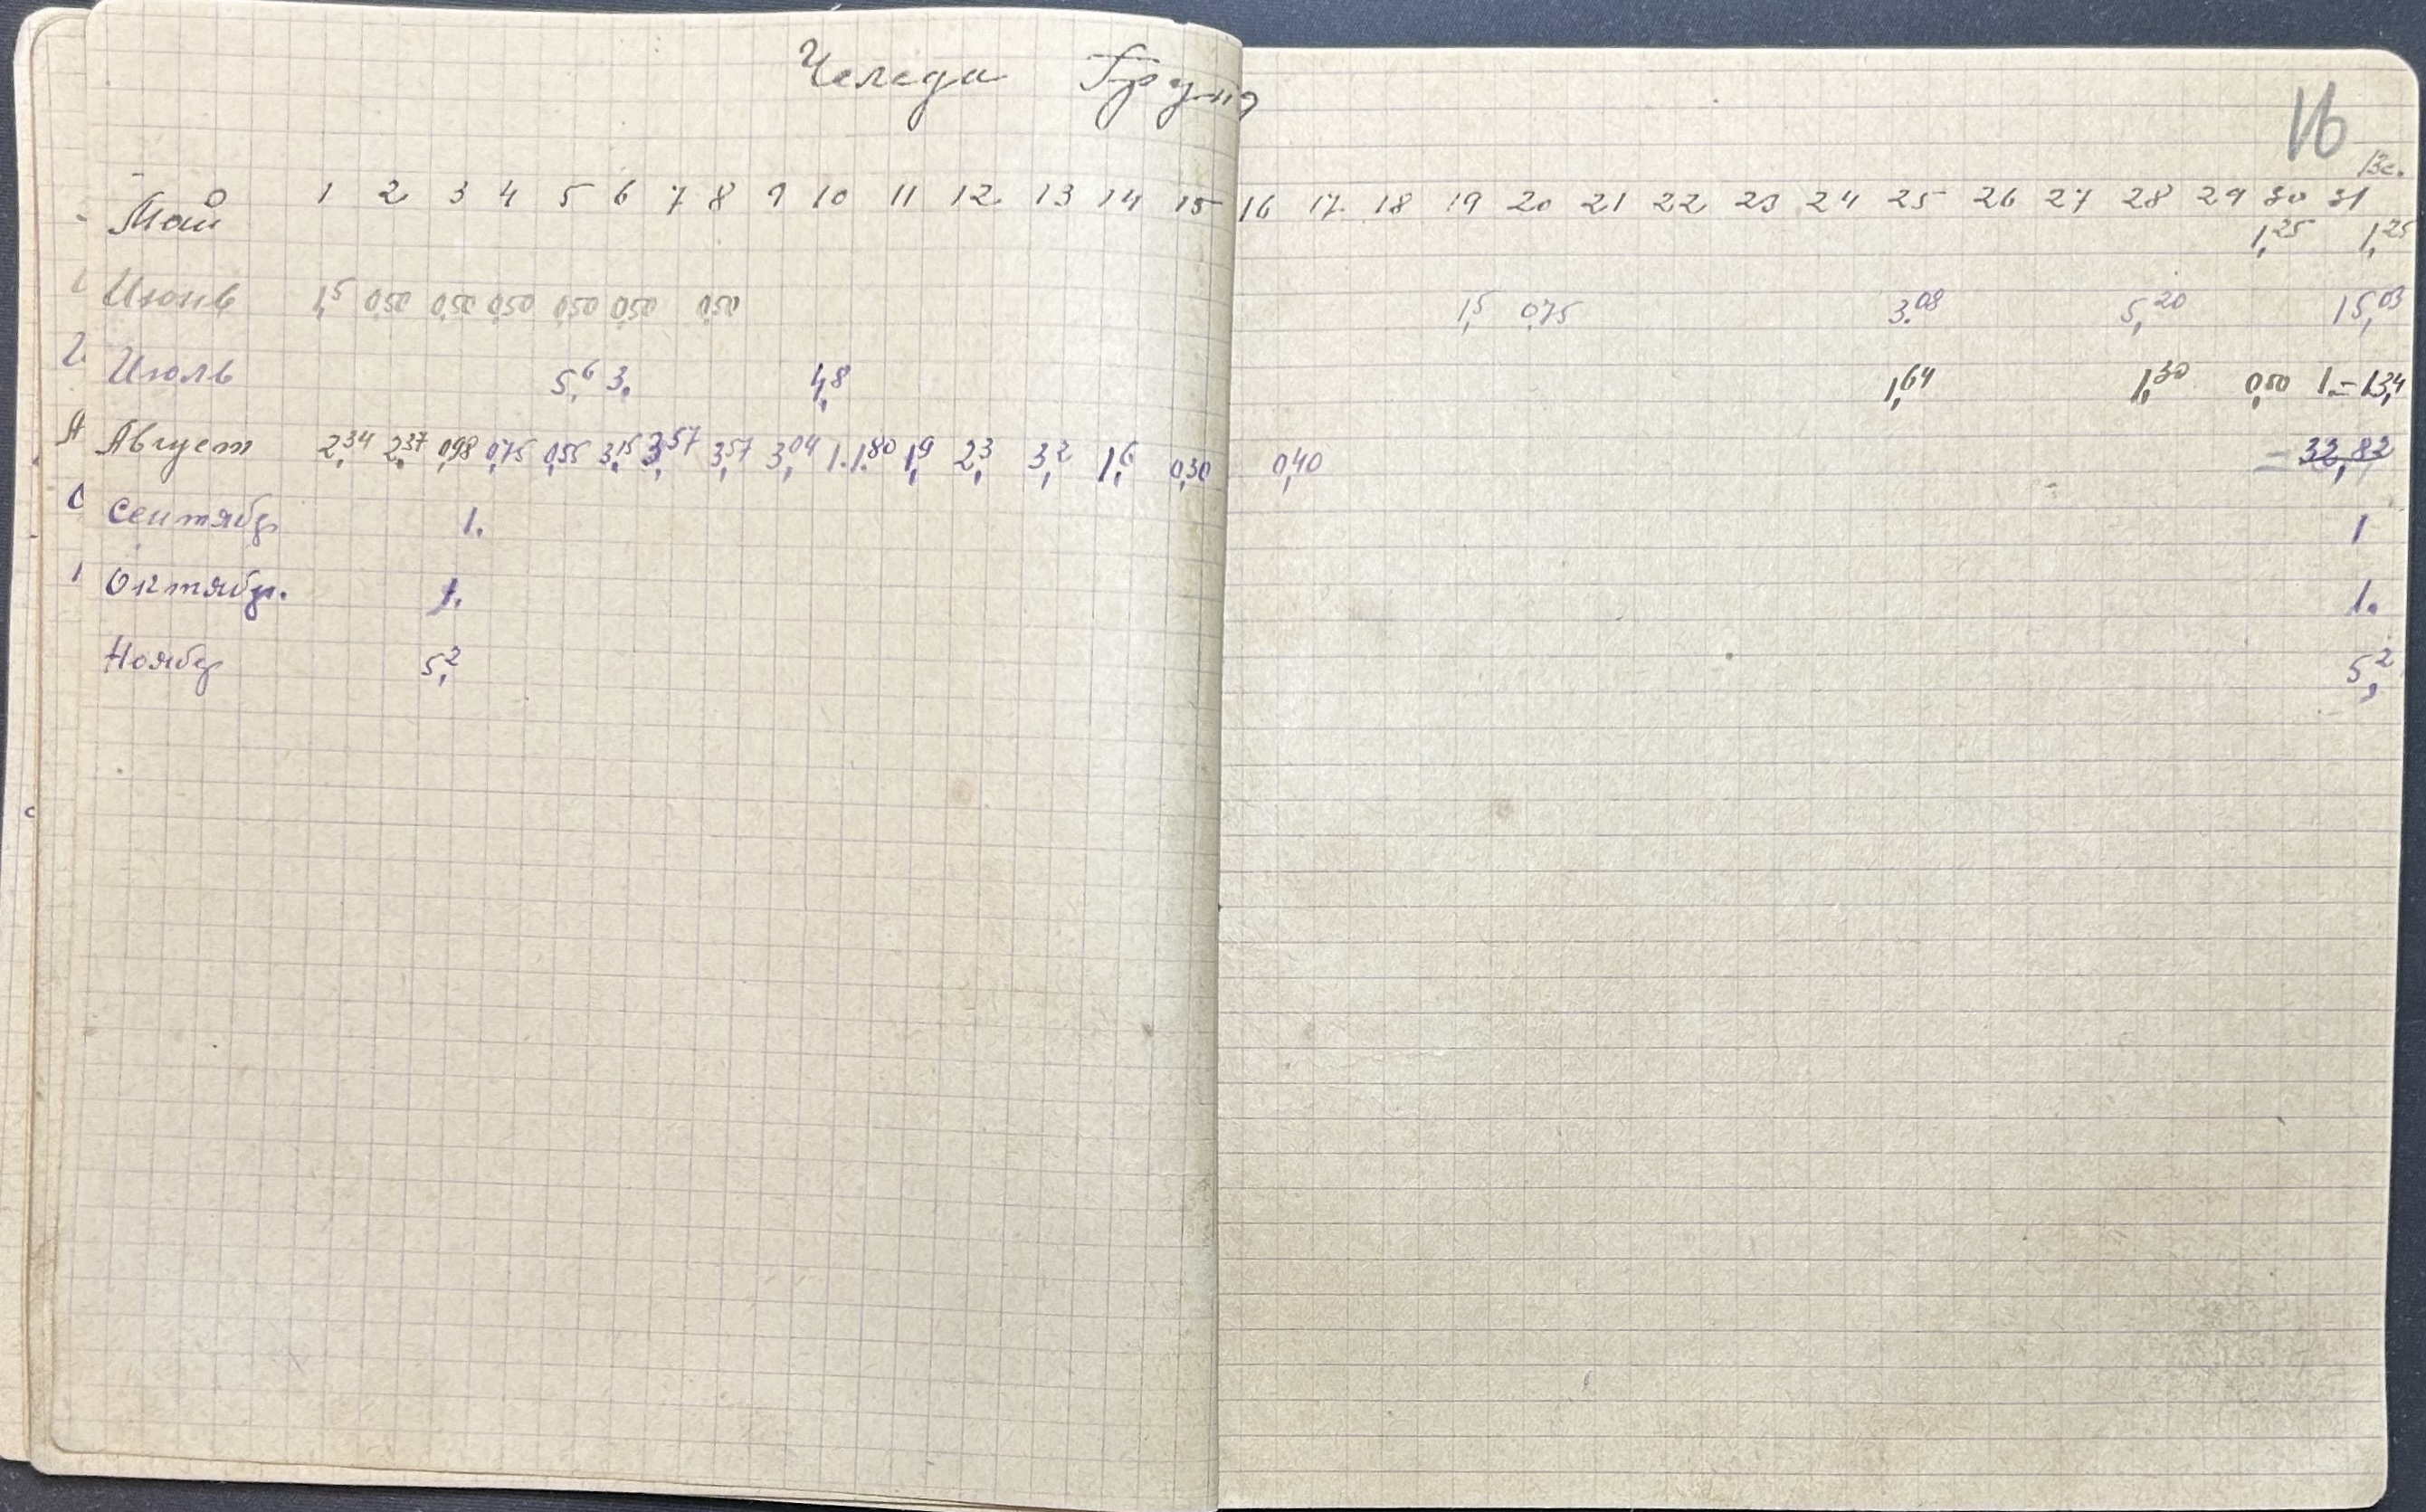 Челеда Груня
16
Вс.
1 2 3 4 5 6 7 8 9 10 11 12. 13 14 15 16 17. 18 19 20 21 22 23 24 25 26 27 28 29 30 31
Май 1,25 1,25
Июнь 1,5 0,50 0,50 0,50 0,50 0,50 0,50 1,5 0,75 3.08 5,20 15,03
Июль 5,6 3. 4,8 1,64 1,30 0,50 1.- 13,4
Август 2,34 2,37 0,98 0,75 0,55 3,15 3,57 3,57 3,04 1.1.80 1,9 2,3 3,2 1,6 0,30 0,40 = 32,82
Сентябр. 1. 1
Октябр. 1. 1.
Ноябр 5,2 5,2